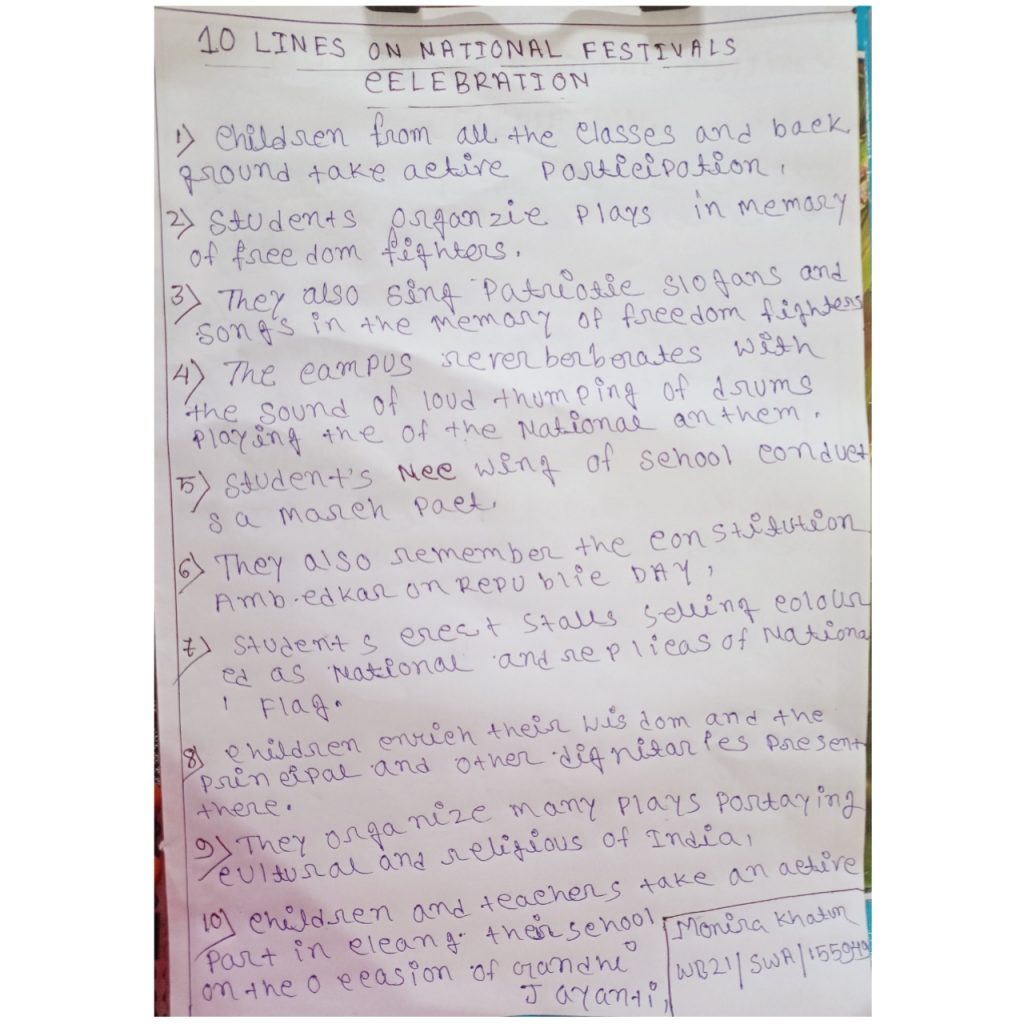 10 LINES ON NATIONAL FESTIVALS
CELEBRATION
1) Children from all the classes and back
ground take active Participation.
2) Students organzie Plays in memory
of freedom fighters.
3) They also sing Patriotic slogans and
songs in the memory of freedom fighters
4) The campus reverberberates with
the sound of loud thumping of drums
Playing the of the National anthem.
5) Student's Ncc wing of school conduct
s a march Pact.
6) They also remember the constitution
Ambedkar on REPUblic DAY,
7) Students erect stalls selling colour
ed as National and replicas of Nationa
l Flag.
8) Children enrich their wisdom and the
Principal and other dignitaries Present
there.
9) They organize many Plays Portaying
cultural and religious of India,
10) Children and teachers take an active
Part in cleang their school
on the occasion of Gandhi
Jayanti,
Monira Khatun
WB21/SWA/155949